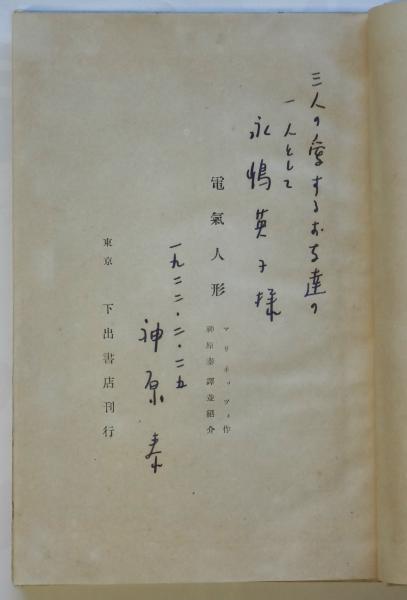 三人の愛するお友達の
一人として
永嶋英子様
電氣人形
マリネッツィ作
神原泰譯並紹介
一九二二・二・二五
神原泰
東京 下出書店刊行